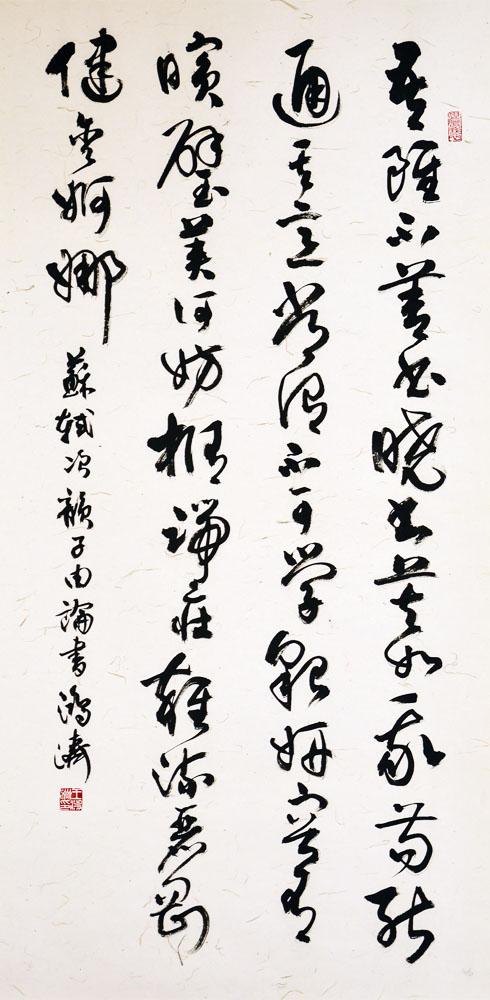 吾雖不善書曉書莫如我苟能
通其意常謂不可學貌妍容有
矉璧美何妨橢端莊雜流麗剛
健含婀娜
蘇軾次韻子由論書鴻